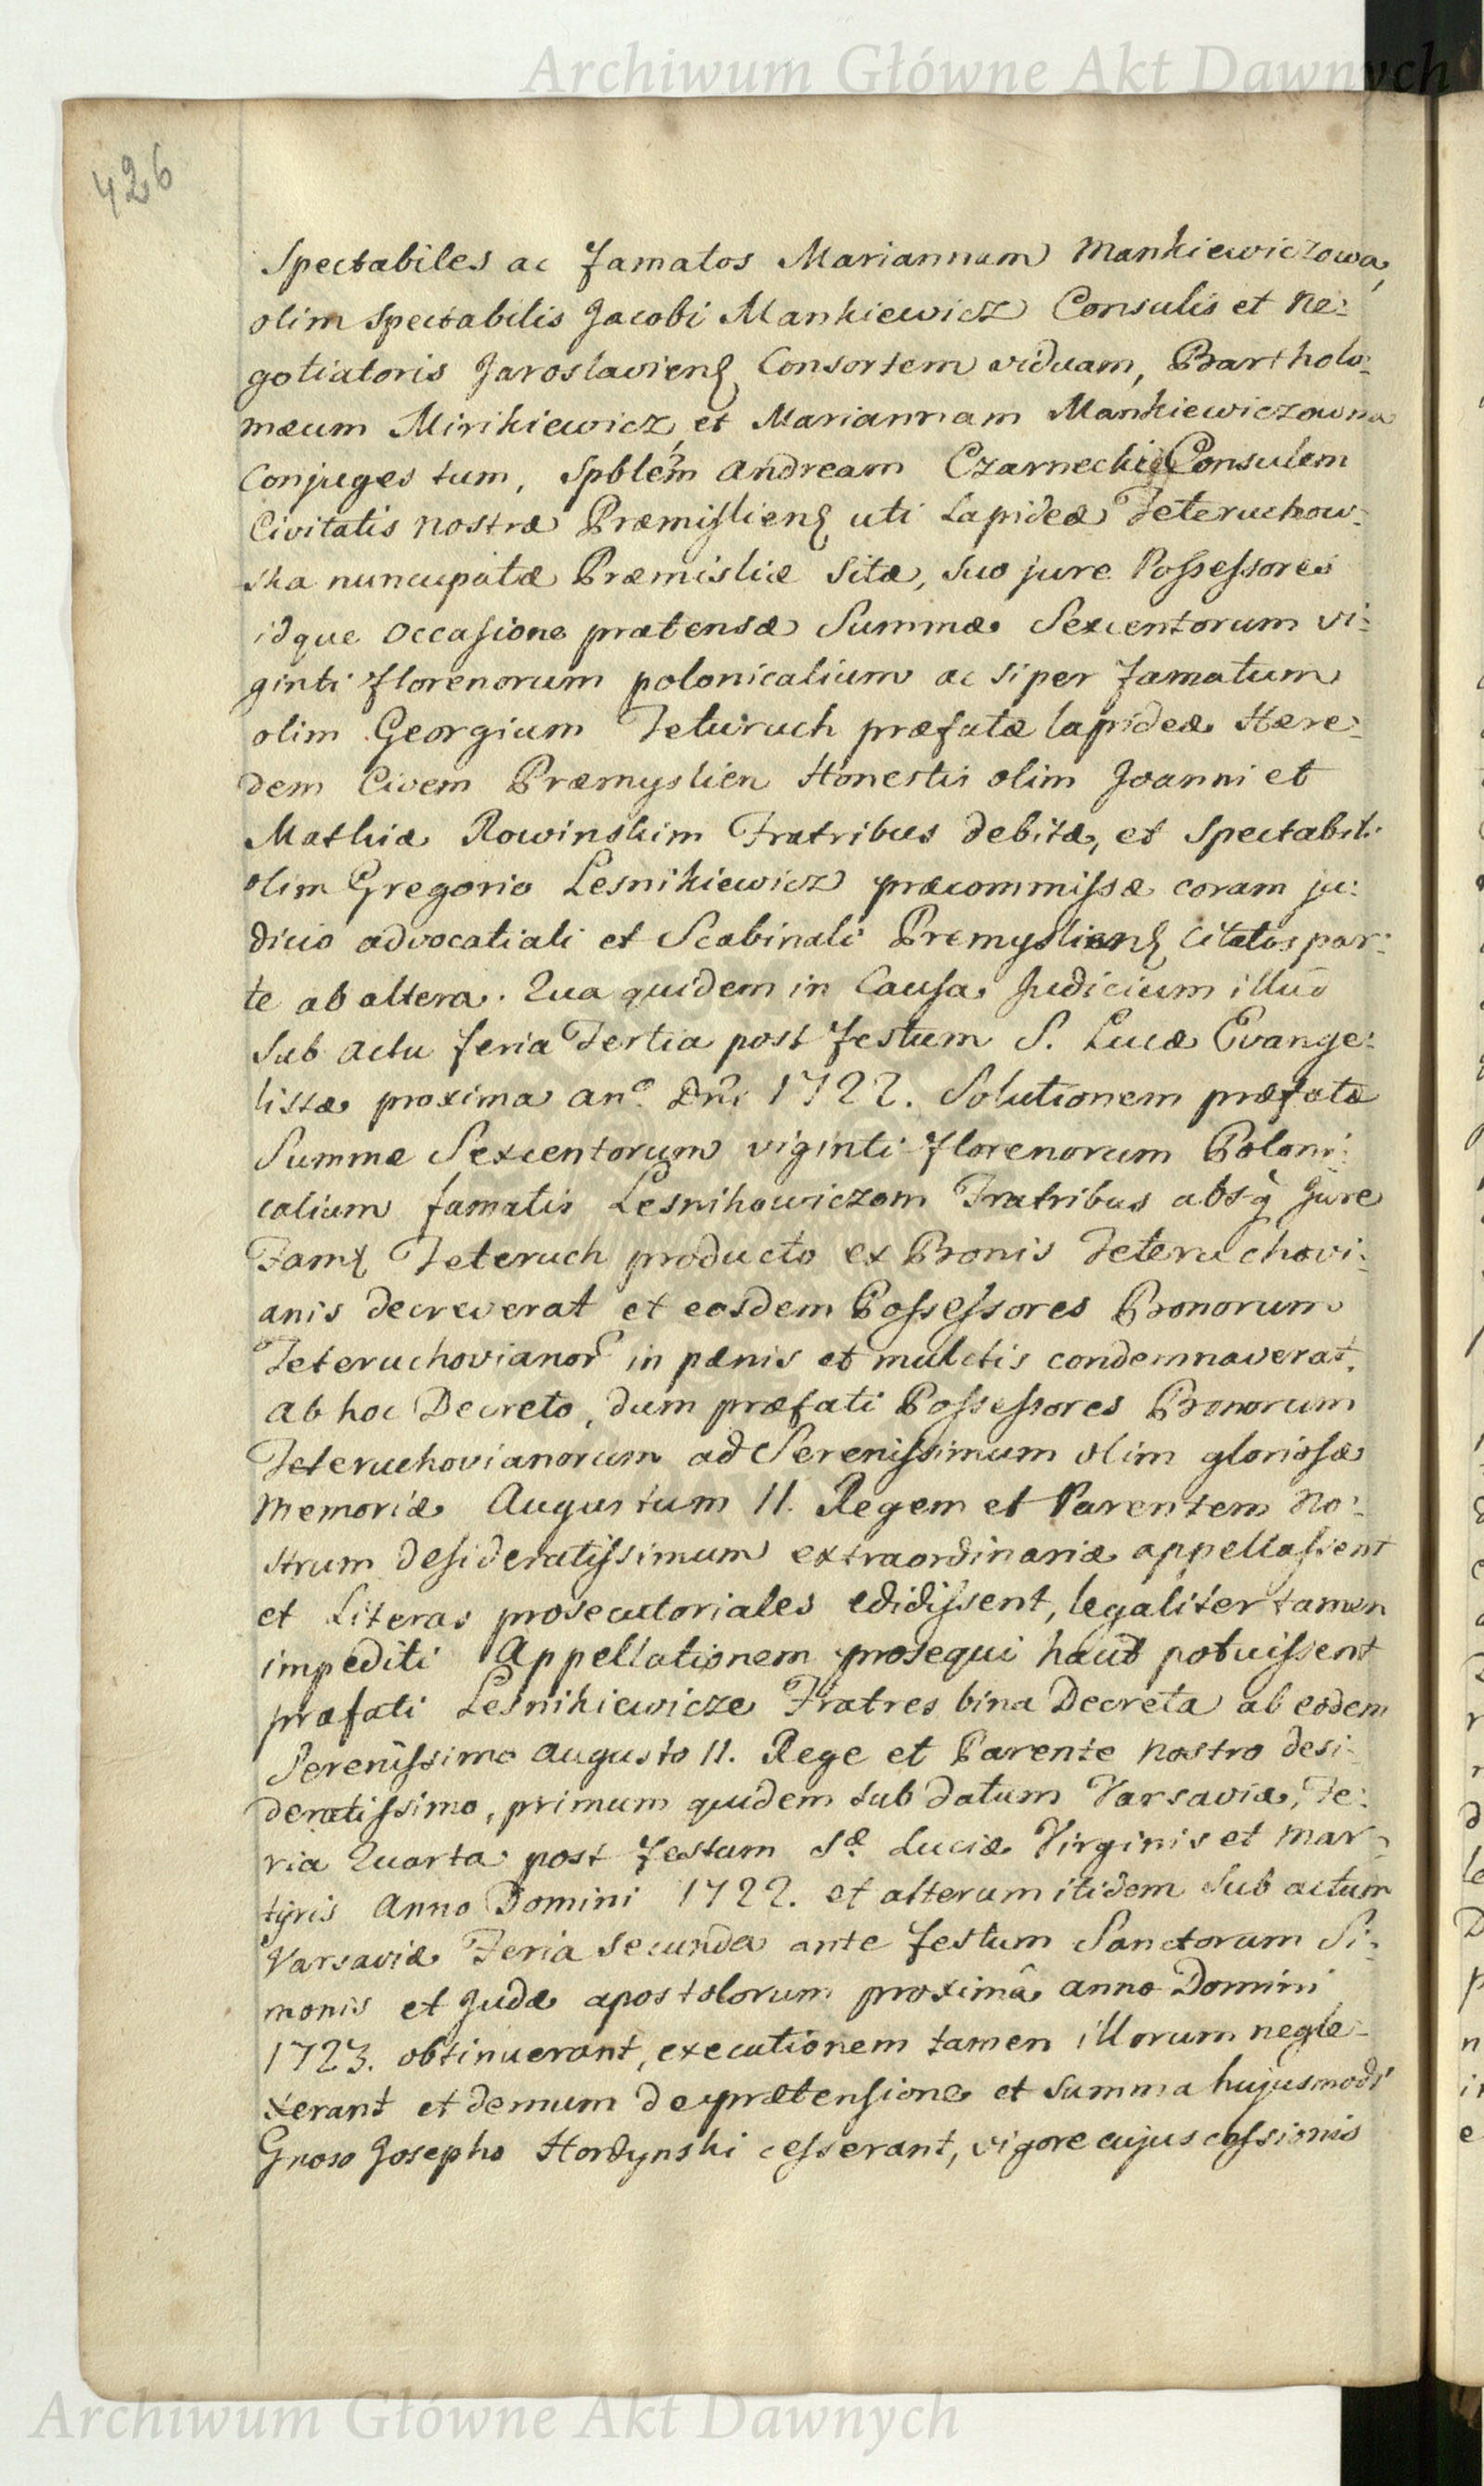 Archiwum Główne Akt Dawnych
426
Spectabiles ac famatos Mariannam Mankiewiczowa,
olim Spectabilis Jacobi Mankiewicz Consulis et Ne:
gotiatoris Jaroslaviens Consortem viduam, Bartholo:
mæum Mirikiewicz et Mariannam Mankiewiczowna
Conjuges tum, Spblem Andream Czarnecki Consulem
Civitatis nostræ Præmisliens uti Lapideæ Teteruchow:
ska nuncupatæ Præmisliæ Sitæ, suo jure Possessores
idque Occasione prætensæ Summæ Sexcentorum vi:
ginti florenorum polonicalium ac si per famatum
olim Georgium Teturuch præfatæ lapideæ Hære:
dem Civem Præmyslien Honestis olim Joanni et
Mathiæ Rowinskim Fratribus debitæ, et Spectabili
olim Gregorio Lesnikiewicz præcommissæ coram ju:
dicio advocatiali et Scabinali Premysliens Citatos par:
te ab altera. Qua quidem in Causa Judicium illud
Sub actu feria Tertia post festum S. Lucæ Evange:
listæ proxima an° Dni 1722. Solutionem præfatæ
Summæ Sexcentorum viginti florenorum Poloni:
calium famatis Lesnikowiczom Fratribus absq Jure
Fam Teteruch producto ex Bonis Teteruchovi:
anis decreverat et eosdem Possessores Bonorum
Teteruchovianor in pænis et mulctis condemnaverat.
Ab hoc Decreto, dum præfati Possessores Bonorum
Teteruchovianorum ad Serenissimum olim gloriosæ
Memoriæ Augustum II. Regem et Parentem No:
strum desideratissimum extraordinariæ appellassent
et Literas prosecutoriales edidissent, legaliter tamen
impediti Appellationem prosequi haut potuissent
præfati Lesnikiewicze Fratres bina Decreta ab eodem
Serenissimo Augusto II. Rege et Parente nostro desi:
deratissimo, primum quidem sub datum Varsaviæ, Fe:
ria Quarta post festum Sæ Luciæ Virginis et Mar:
tyris Anno Domini 1722. et alterum itidem Sub actum
Varsaviæ Feria Secunda ante festum Sanctorum Si:
monis et Judæ apostolorum proximâ anno Domini
1723. obtinuerant, executionem tamen illorum negle:
xerant et demum de prætensione et summa hujusmodi
Gnoso Josepho Hordynski cesserant, vigore cujus cessionis
Archiwum Główne Akt Dawnych